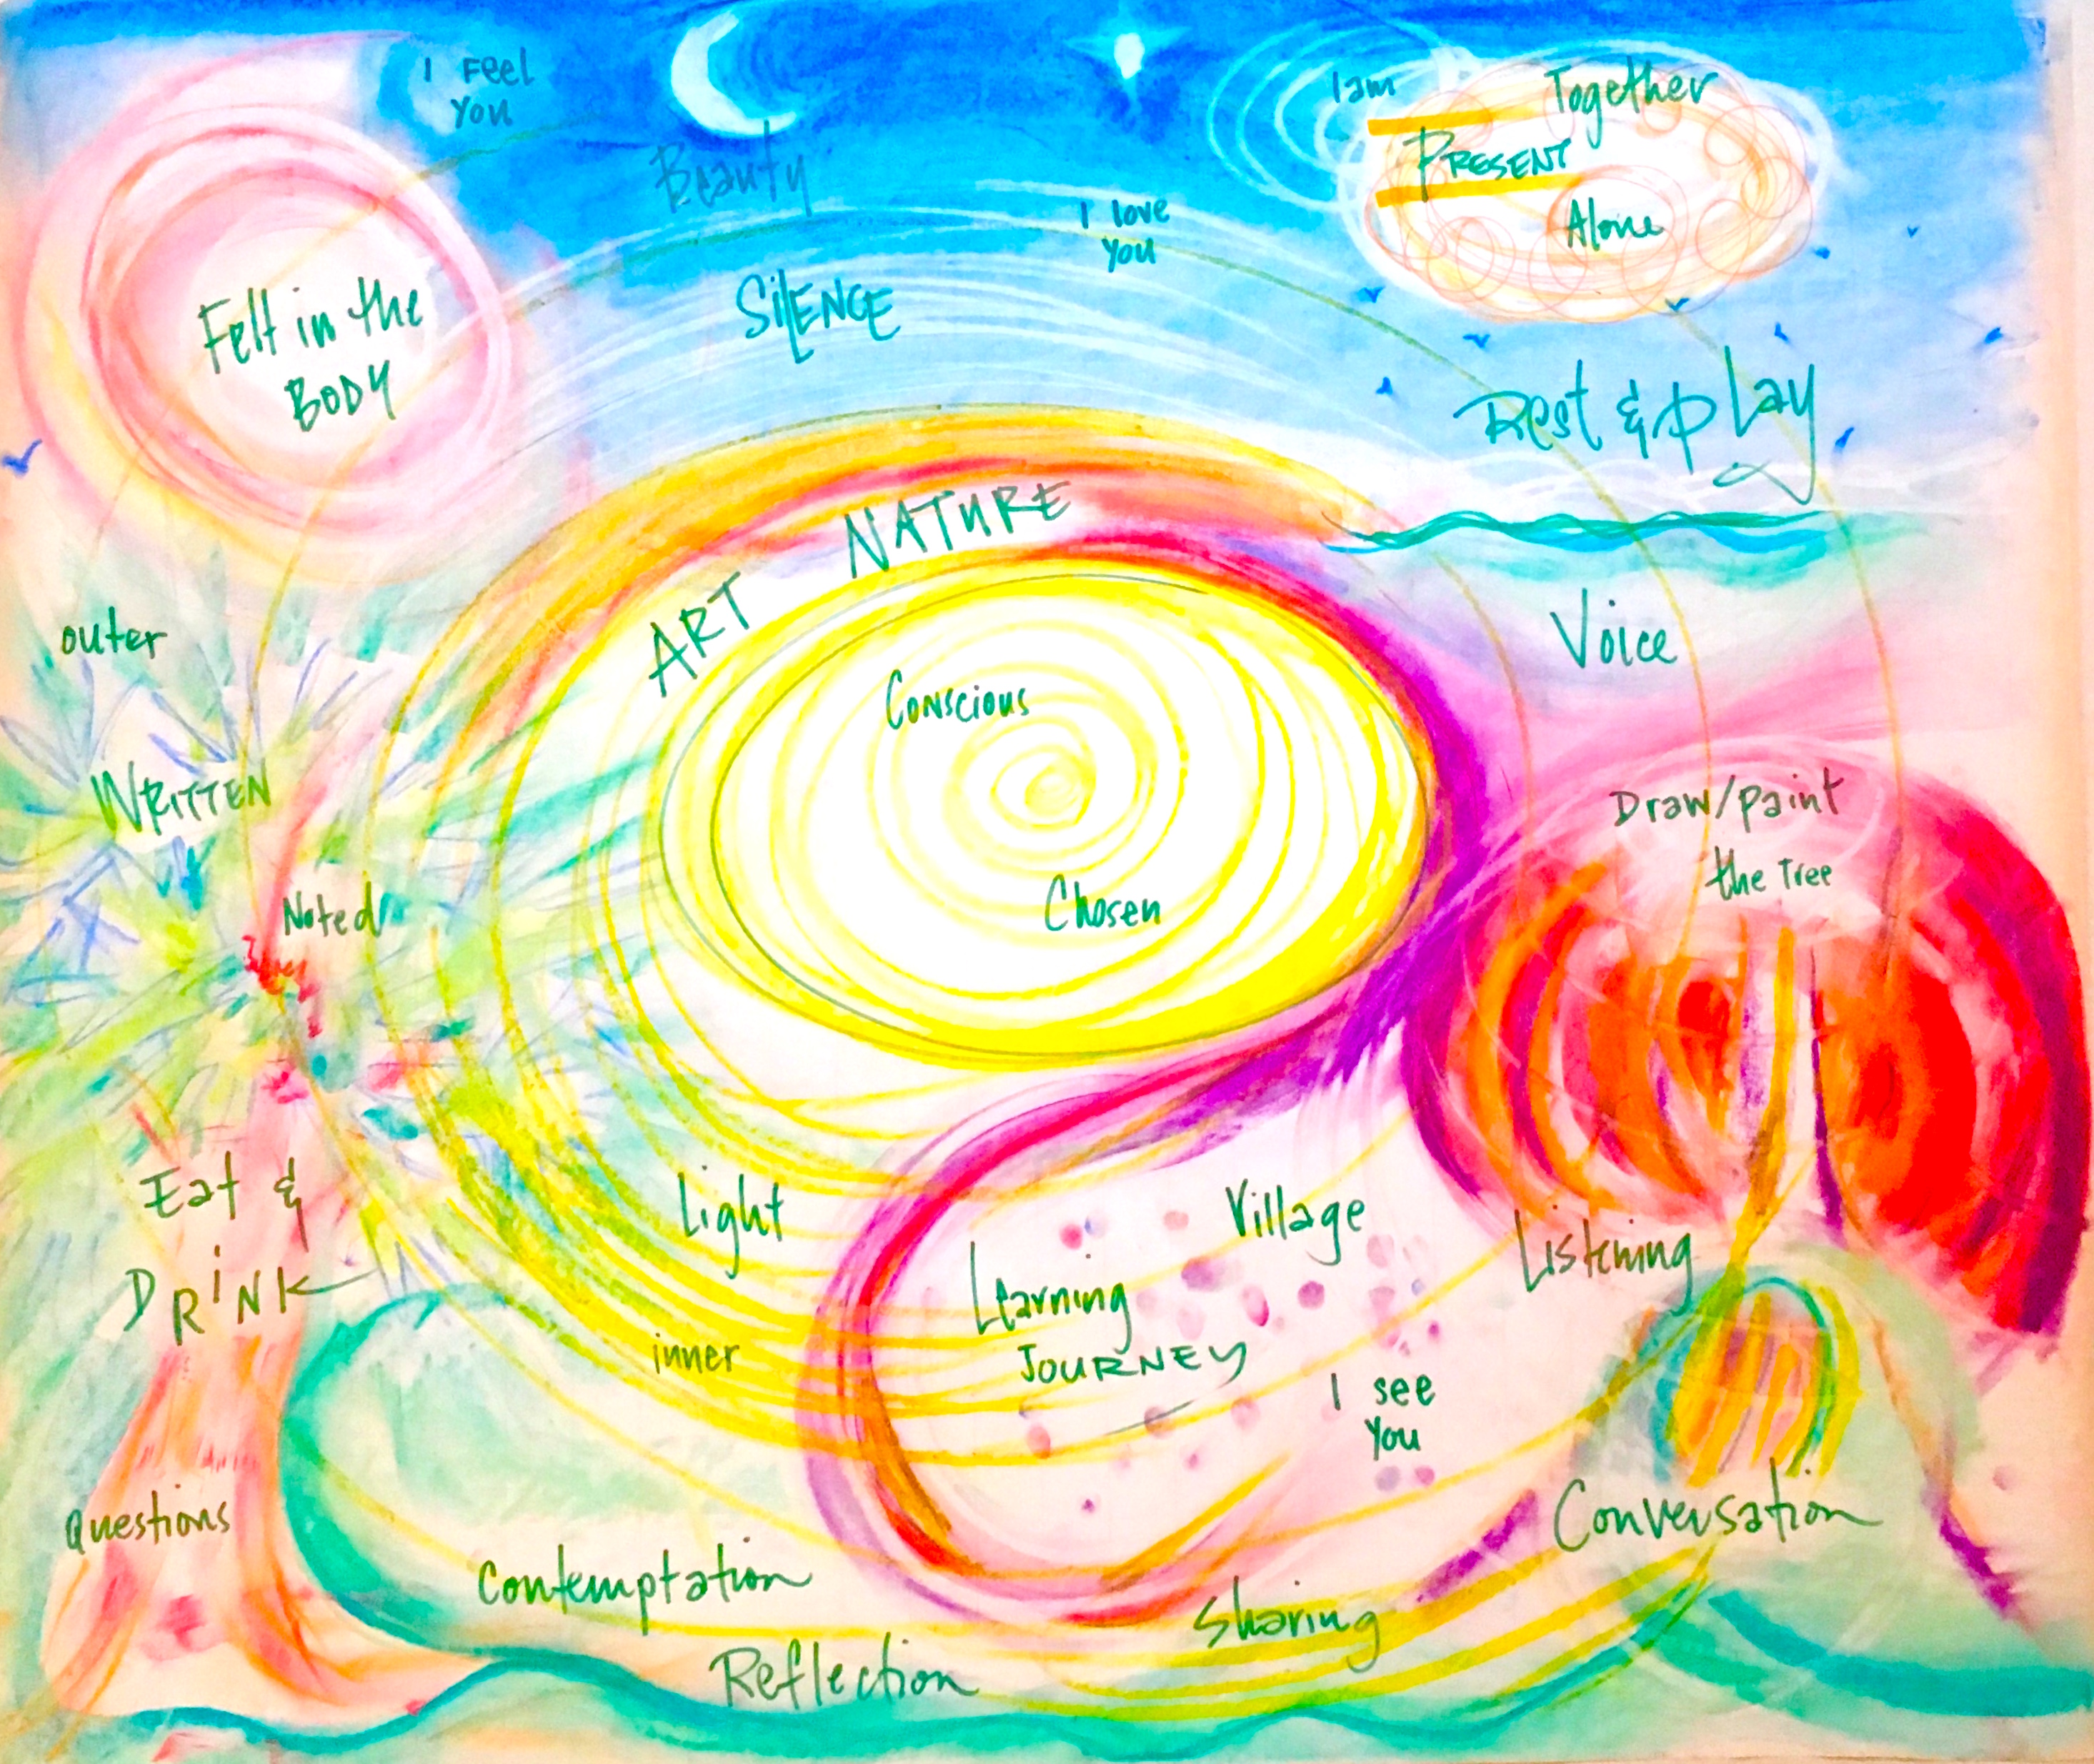 I Feel
You
Beauty
I love
You
I am
Together
PRESENT
Alone
Felt in the
BODY
SilENCE
Rest & play
NATURE
ART
Voice
outer
WRITTEN
Noted
Conscious
Chosen
Draw/paint
the Tree
Eat &
DRiNK
Light
inner
Village
Learning
JOURNEY
I see
You
Listening
Questions
Contemptation
Reflection
Sharing
Conversation